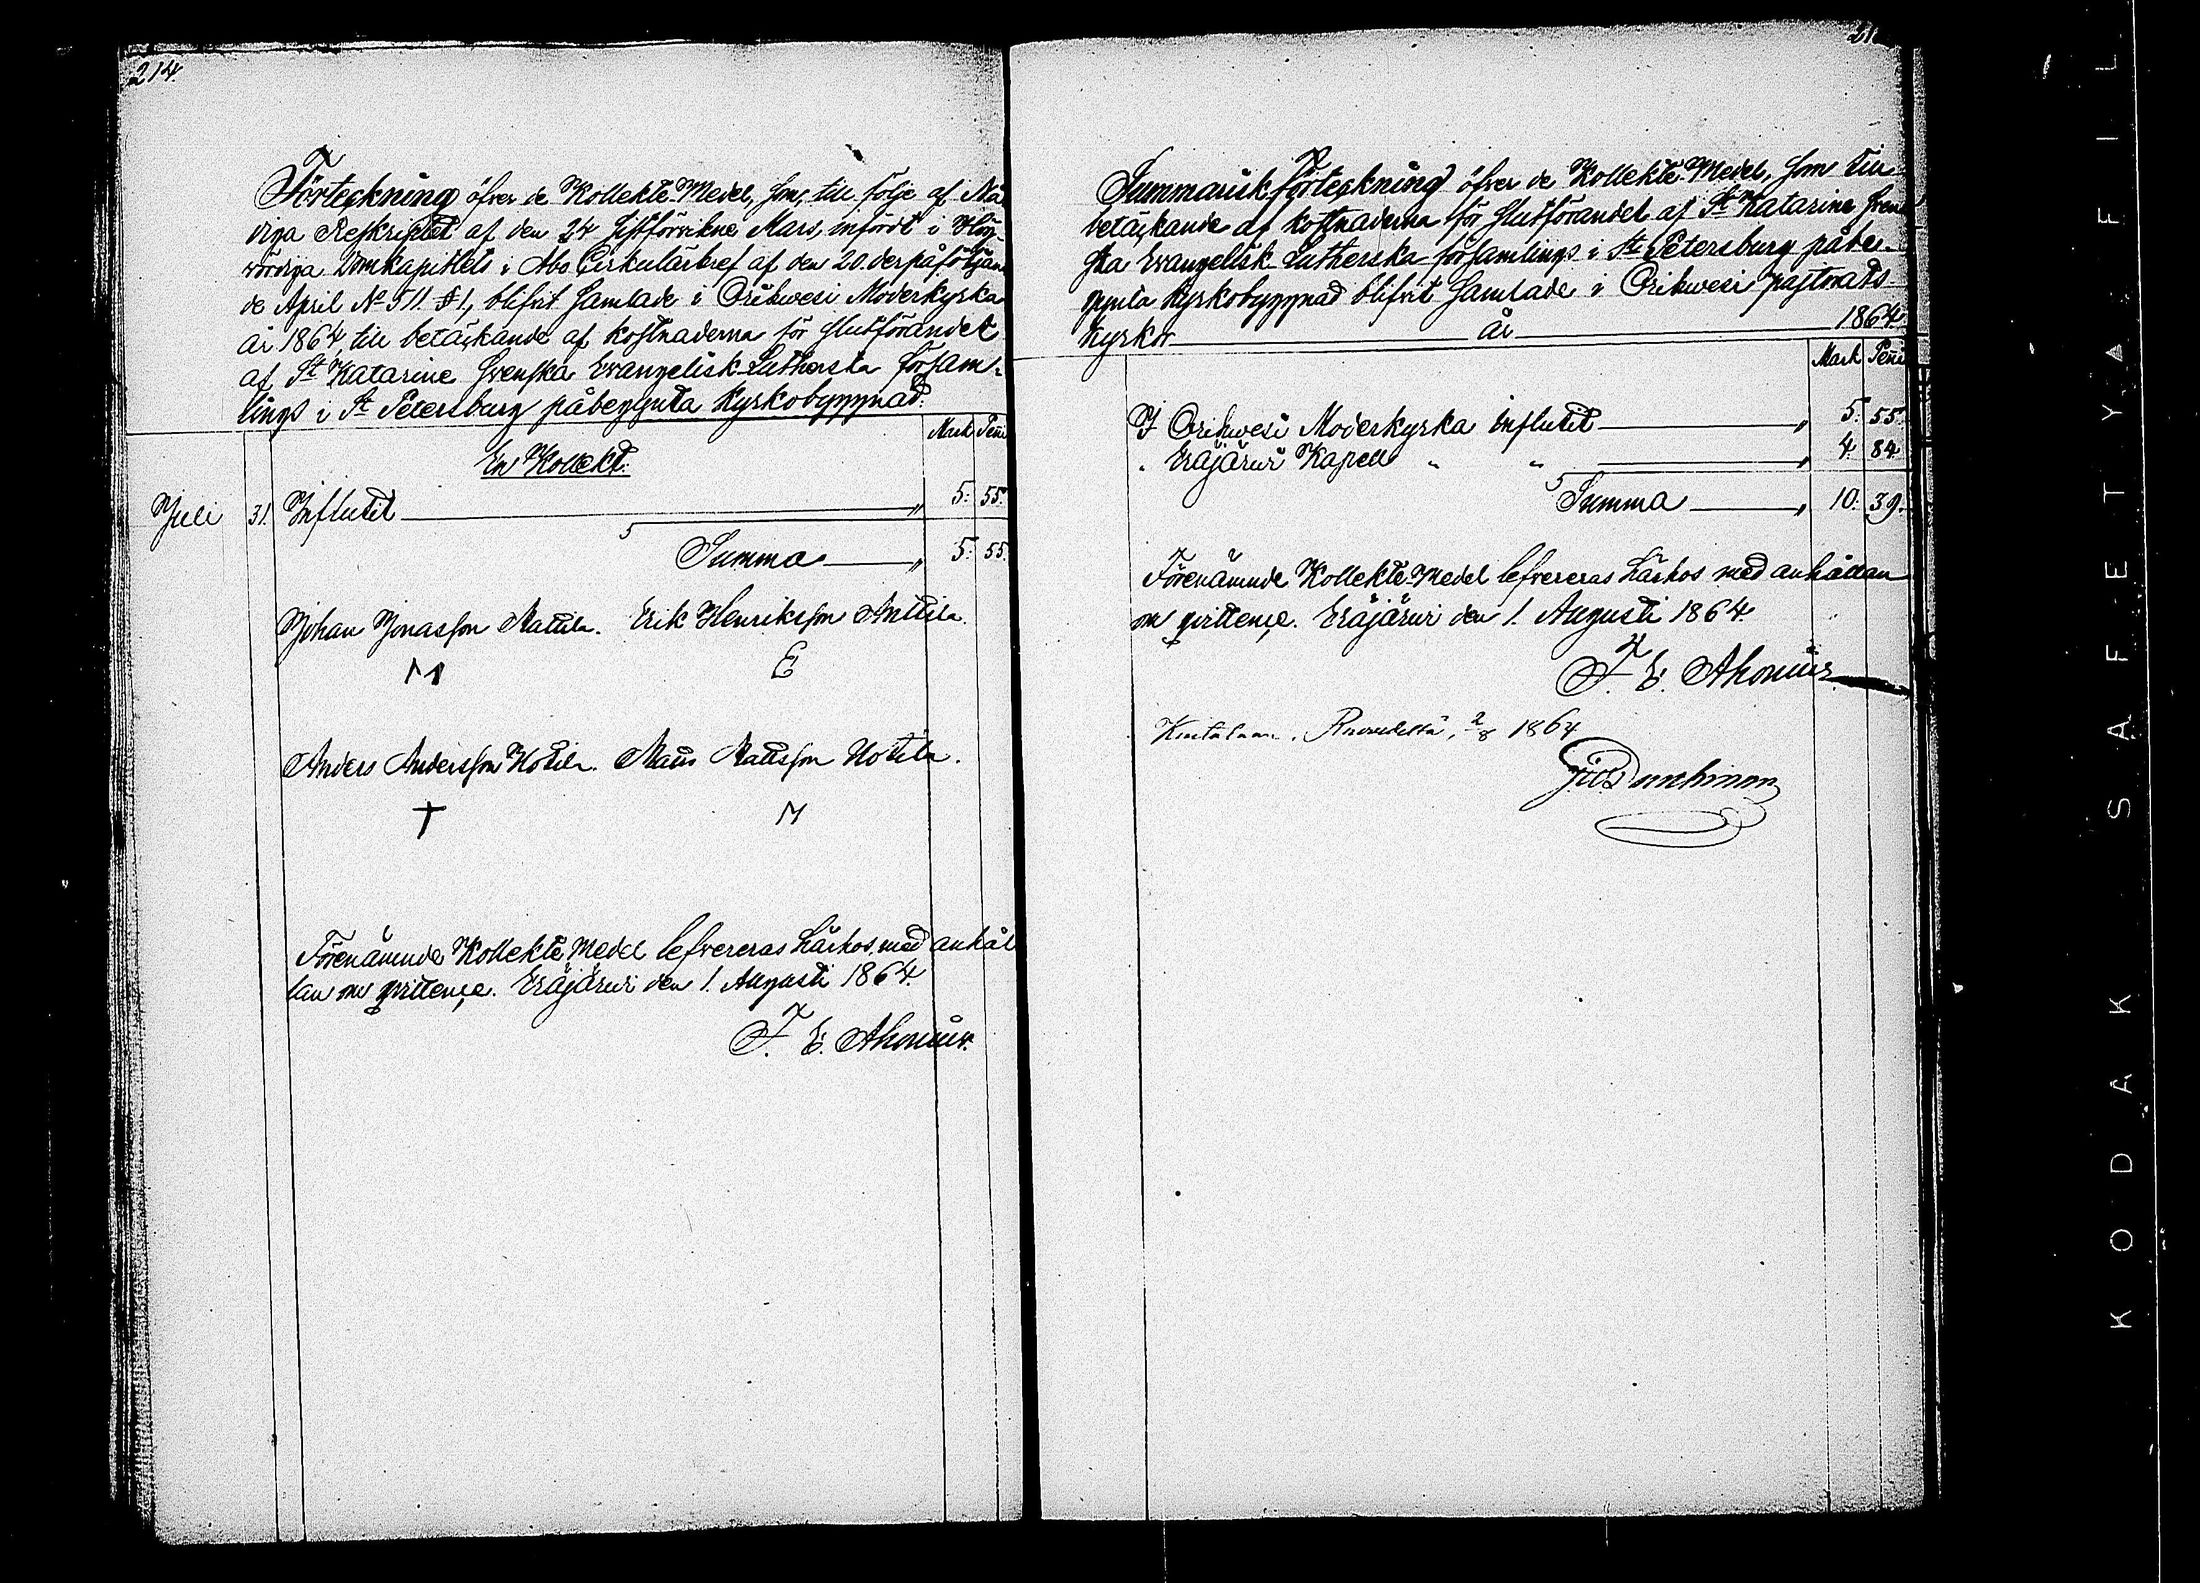 214.
Förteckning öfver de Kollekte-Medel, som, till följe af Nå-
diga Reskriptet af den 24 sistförvikne Mars, infördt i Hög-
vördiga Domkapitlets i Åbo Cirkulärbref af den 20. derpåföljan-
de April No 511. § 1., blifvit samlade i Orihwesi Moderkyrka
år 1864, till betäckande af kostnaderna för slutförandet
af St Katarine Svenska Evangelisk-Lutherska Försam-
lings i St Petersburg påbegynta Kyrkobyggnad.
Mark Penni
En Kollekt:
Juli 31. Influtit " 5: 55.
Summa " 5: 55.
Johan Jonasson Mattila. Erik Henriksson Anttila.
M E
Anders Andersson Hotila. Matts Mattsson Uotila.
† M
Förenämnde Kollekte Medel lefvereras härhos, med anhål-
lan om qvittence. Eräjärvi den 1. Augusti 1864.
F. E. Ahonius.
Summarisk Förteckning öfver de Kollekte-Medel, som till
betäckande af kostnaderna för slutförandet af St Katarine Sven-
ska Evangelisk-Lutherska församlings i St Petersburg påbe-
gynta Kyrkobyggnad blifvit samlade i Orihwesi pastorats
Kyrkor år 1864.
Mark Penni
I Orihwesi Moderkyrka influtit " 5: 55.
" Eräjärvi Kapell " " " 4: 84.
Summa " 10: 39.
Förenämnde Kollekte-Medel lefvereras härhos med anhållan
om qvittence. Eräjärvi den 1. Augusti 1864.
F. E. Ahonius.
Ruovedellä, 2/8 1864
KODAK SAFETY FILM